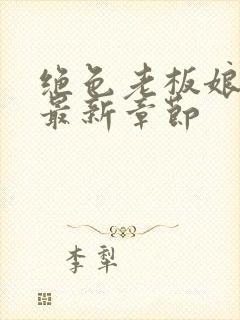 绝色老板娘
最新章节
李犁